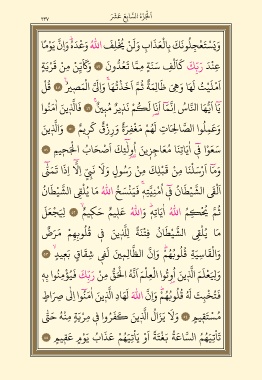 الجزء السابع عشر
٣٣٧
وَيَسْتَعْجِلُونَكَ بِالْعَذَابِ وَلَنْ يُخْلِفَ اللّٰهُ وَعْدَهُ وَاِنَّ يَوْمًا
عِنْدَ رَبِّكَ كَاَلْفِ سَنَةٍ مِمَّا تَعُدُّونَ ٤٧ وَكَاَيِّنْ مِنْ قَرْيَةٍ
اَمْلَيْتُ لَهَا وَهِيَ ظَالِمَةٌ ثُمَّ اَخَذْتُهَا وَاِلَيَّ الْمَصِيرُ ٤٨ قُلْ
يَا اَيُّهَا النَّاسُ اِنَّمَا اَنَا لَكُمْ نَذِيرٌ مُبِينٌ ٤٩ فَالَّذِينَ اٰمَنُوا
وَعَمِلُوا الصَّالِحَاتِ لَهُمْ مَغْفِرَةٌ وَرِزْقٌ كَرِيمٌ ٥٠ وَالَّذِينَ
سَعَوْا فِي اٰيَاتِنَا مُعَاجِزِينَ اُولٰئِكَ اَصْحَابُ الْجَحِيمِ ٥١
وَمَا اَرْسَلْنَا مِنْ قَبْلِكَ مِنْ رَسُولٍ وَلَا نَبِيٍّ اِلَّا اِذَا تَمَنّٰى
اَلْقَى الشَّيْطَانُ فِي اُمْنِيَّتِهِ فَيَنْسَخُ اللّٰهُ مَا يُلْقِي الشَّيْطَانُ
ثُمَّ يُحْكِمُ اللّٰهُ اٰيَاتِهِ وَاللّٰهُ عَلِيمٌ حَكِيمٌ ٥٢ لِيَجْعَلَ
مَا يُلْقِي الشَّيْطَانُ فِتْنَةً لِلَّذِينَ فِي قُلُوبِهِمْ مَرَضٌ
وَالْقَاسِيَةِ قُلُوبُهُمْ وَاِنَّ الظَّالِمِينَ لَفِي شِقَاقٍ بَعِيدٍ ٥٣
وَلِيَعْلَمَ الَّذِينَ اُوتُوا الْعِلْمَ اَنَّهُ الْحَقُّ مِنْ رَبِّكَ فَيُؤْمِنُوا بِهِ
فَتُخْبِتَ لَهُ قُلُوبُهُمْ وَاِنَّ اللّٰهَ لَهَادِ الَّذِينَ اٰمَنُوا اِلٰى صِرَاطٍ
مُسْتَقِيمٍ ٥٤ وَلَا يَزَالُ الَّذِينَ كَفَرُوا فِي مِرْيَةٍ مِنْهُ حَتّٰى
تَأْتِيَهُمُ السَّاعَةُ بَغْتَةً اَوْ يَأْتِيَهُمْ عَذَابُ يَوْمٍ عَقِيمٍ ٥٥